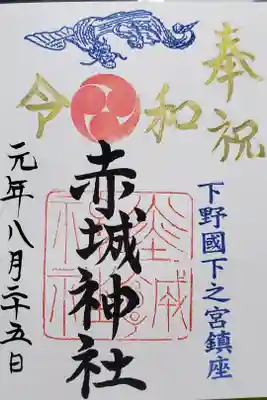 奉祝
令和
下野國下之宮鎮座
赤城神社
赤城神社
元年八月二十五日